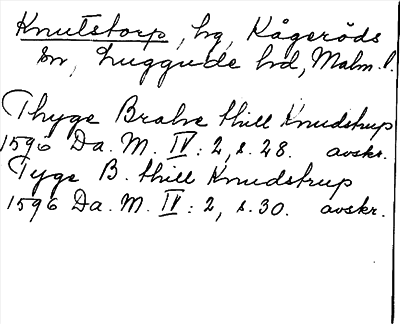 Knutstorp, hg, Kågeröds
sn, Luggude hd, Malm. l.
Thyge Brahe thill Knudstrup
1596 Da. M. IV: 2, s. 28. avskr.
Tyge B. thill Knudstrup
1596 Da. M. IV: 2, s. 30. avskr.